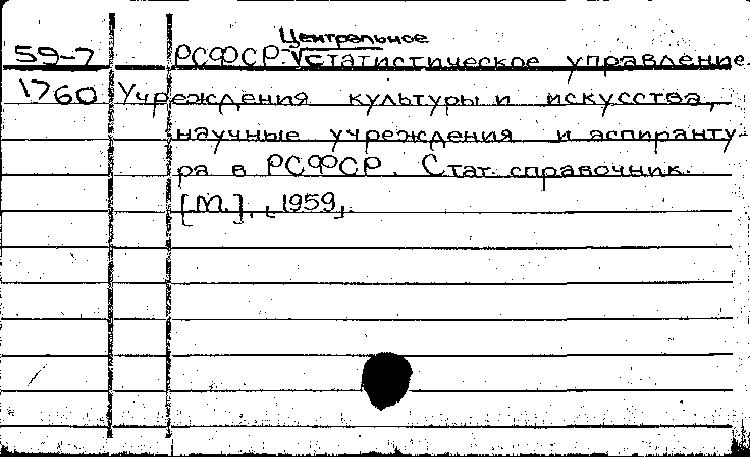 Центральное
59-7 РСФСР. Vстатистическое управление.
1760 Учреждения культуры и искусства,
научные учреждения и аспиранту-
ра в РСФСР. Стат. справочник.
[М.], [1959].